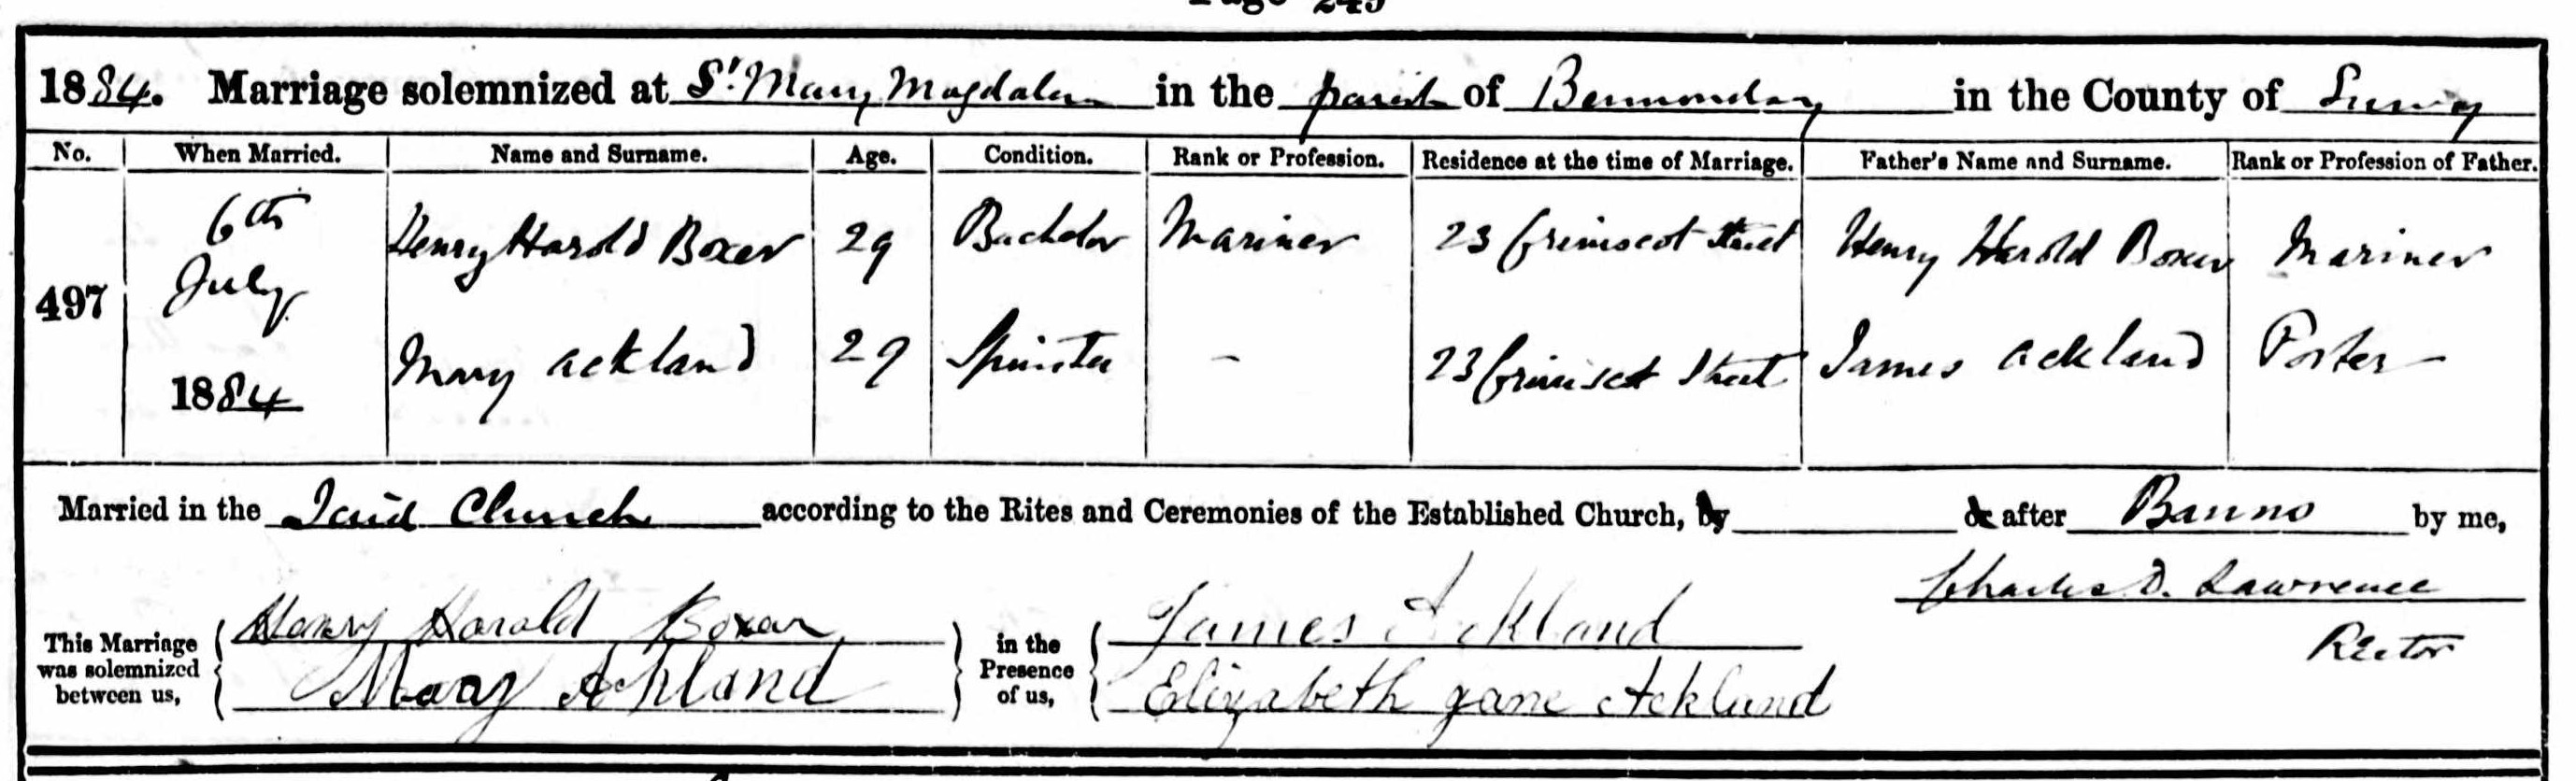 Page 249
1884. Marriage solemnized at St. Mary Magdalen in the parish of Bermondsey in the County of Surrey
No. When Married. Name and Surname. Age. Condition. Rank or Profession. Residence at the time of Marriage. Father's Name and Surname. Rank or Profession of Father.
497 6th July 1884
Henry Harold Boxer 29 Bachelor Mariner 23 Grimscot Street Henry Harold Boxer Mariner
Mary Ackland 29 Spinster - 23 Grimscot Street James Ackland Porter
Married in the Said Church according to the Rites and Ceremonies of the Established Church, by or after Banns by me,
Charles D. Lawrence
Rector
This Marriage was solemnized between us, Henry Harold Boxer
Mary Ackland
in the Presence of us, James Ackland
Elizabeth Jane Ackland